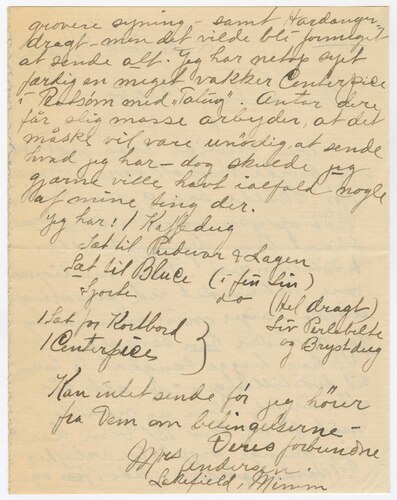 grovere syning – samt Hardanger-
dragt – men det vilde bli formeget
at sende alt. Jeg har netop sydt
færdig en meget vakker Centerpice
i Rodsøm med „Taling”. Antar dere
får slig masse arbeyder, at det
måske vil vare unördig, at sende
hvad jeg har – dog skulde jeg
gjerne ville havt ialfald nogle
af mine ting der.
Jeg har: 1 Kaffedug
Sæt til Pudevar & Lagen
Sæt til Bluce (i fin Lin)
Skjorte do (Hel dragt)
Liv Perlebelte
1 Sæt for Kortbord og Brystdug
1 Centerpices
Kan intet sende før jeg hörer
fra Dem om betingelserne –
Deres forbundne
Mrs Andersen
Lakefield, Minn